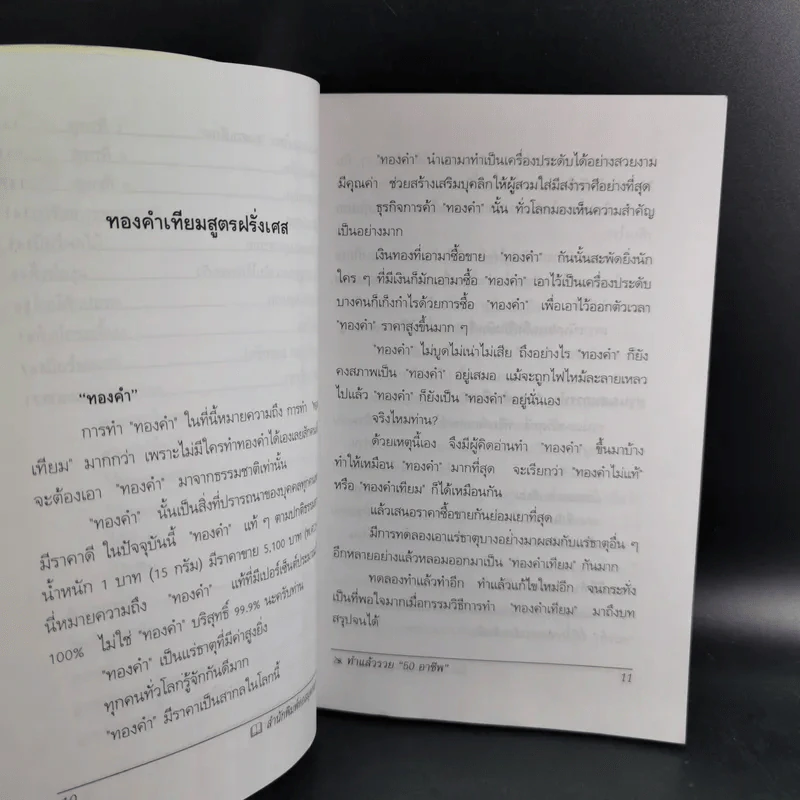 ทองคำเทียมสูตรฝรั่งเศส
"ทองคำ"
การทำ "ทองคำ" ในที่นี้หมายความถึง การทำ
เทียม" มากกว่า เพราะไม่มีใครทำทองคำได้เองเลยสักคน
จะต้องเอา "ทองคำ" มาจากธรรมชาติเท่านั้น
"ทองคำ" นั้นเป็นสิ่งที่ปรารถนาของบุคคลทุกคน
มีราคาดี ในปัจจุบันนี้ "ทองคำ" แท้ ๆ ตามปกติธรรม
น้ำหนัก 1 บาท (15 กรัม) มีราคาขาย 5,100 บาท
นี่หมายความถึง "ทองคำ" แท้ที่มีเปอร์เซ็นต์
100% ไม่ใช่ "ทองคำ" บริสุทธิ์ 99.9% นะครับท่าน
"ทองคำ" เป็นแร่ธาตุที่มีค่าสูงยิ่ง
ทุกคนทั่วโลกรู้จักกันดีมาก
"ทองคำ" มีราคาเป็นสากลในโลกนี้
สำนักพิมพ์
10
"ทองคำ" นำเอามาทำเป็นเครื่องประดับได้อย่างสวยงาม
มีคุณค่า ช่วยสร้างเสริมบุคลิกให้ผู้สวมใส่มีสง่าราศีอย่างที่สุด
ธุรกิจการค้า "ทองคำ" นั้น ทั่วโลกมองเห็นความสำคัญ
เป็นอย่างมาก
เงินทองที่เอามาซื้อขาย "ทองคำ" กันนั้นสะพัดยิ่งนัก
ใคร ๆ ที่มีเงินก็มักเอามาซื้อ "ทองคำ" เอาไว้เป็นเครื่องประดับ
บางคนก็เก็งกำไรด้วยการซื้อ "ทองคำ" เพื่อเอาไว้ออกตัวเวลา
"ทองคำ" ราคาสูงขึ้นมาก ๆ
"ทองคำ" ไม่บูดไม่เน่าไม่เสีย ถึงอย่างไร "ทองคำ" ก็ยัง
คงสภาพเป็น "ทองคำ" อยู่เสมอ แม้จะถูกไฟไหม้ละลายเหลว
ไปแล้ว "ทองคำ" ก็ยังเป็น "ทองคำ" อยู่นั่นเอง
จริงไหมท่าน?
ด้วยเหตุนี้เอง จึงมีผู้คิดอ่านทำ "ทองคำ" ขึ้นมาบ้าง
ทำให้เหมือน "ทองคำ" มากที่สุด จะเรียกว่า "ทองคำไม่แท้"
หรือ "ทองคำเทียม" ก็ได้เหมือนกัน
แล้วเสนอราคาซื้อขายกันย่อมเยาที่สุด
มีการทดลองเอาแร่ธาตุบางอย่างมาผสมกับแร่ธาตุอื่น ๆ
อีกหลายอย่างแล้วหลอมออกมาเป็น "ทองคำเทียม" กันมาก
ทดลองทำแล้วทำอีก ทำแล้วแก้ไขใหม่อีก จนกระทั่ง
เป็นที่พอใจมากเมื่อกรรมวิธีการทำ "ทองคำเทียม" มาถึงบท
สรุปจนได้
ทำแล้วรวย "50 อาชีพ"
11